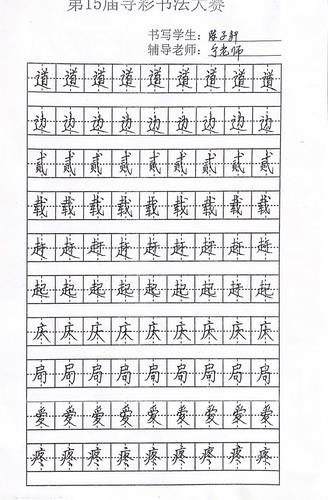 第15届寻彩书法大赛
书写学生：陈子轩
辅导老师：李老师
道道道道道道道道道
边边边边边边边边边
贰贰贰贰贰贰贰贰贰
载载载载载载载载载
赶赶赶赶赶赶赶赶赶
起起起起起起起起起
庆庆庆庆庆庆庆庆庆
局局局局局局局局局
爱爱爱爱爱爱爱爱爱
疼疼疼疼疼疼疼疼疼